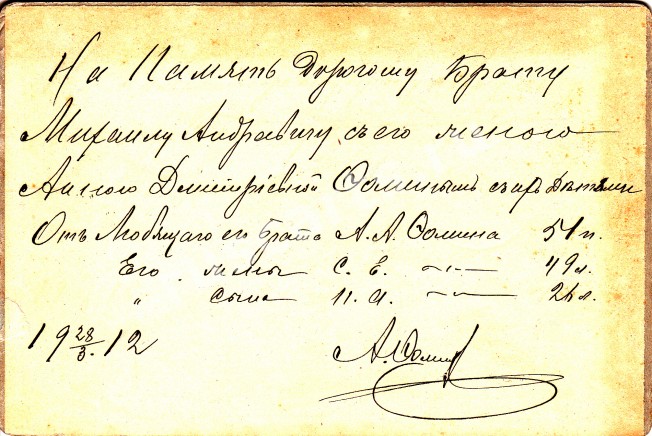 На Память Дорогому Брату
Михаилу Андреевичу съ его женою
Анною Дмитріевной Ѳоминымъ съ ихъ Дѣтьми
Отъ Любящаго его Брата А. А. Ѳомина 51 л.
Его жены С. Е. —"— 49 л.
" сына П. А. —"— 26 л.
19 28/3. 12 А. Ѳомин